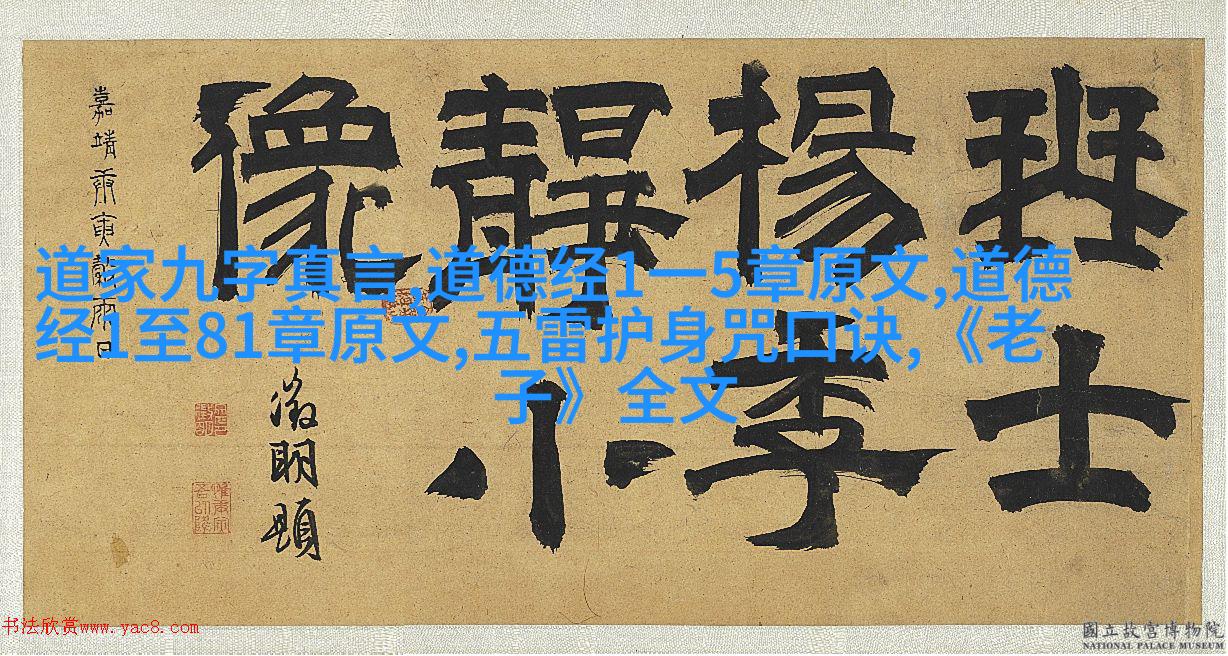 班士
楊季
靜小
像
嘉靖庚寅穀雨日
徵明題
道家九字真言,道德经1一5章原文,道德
经1至81章原文,五雷护身咒口诀,《老
子》全文
书法欣赏www.yac8.com
國立故宮博物院
NATIONAL PALACE MUSEUM